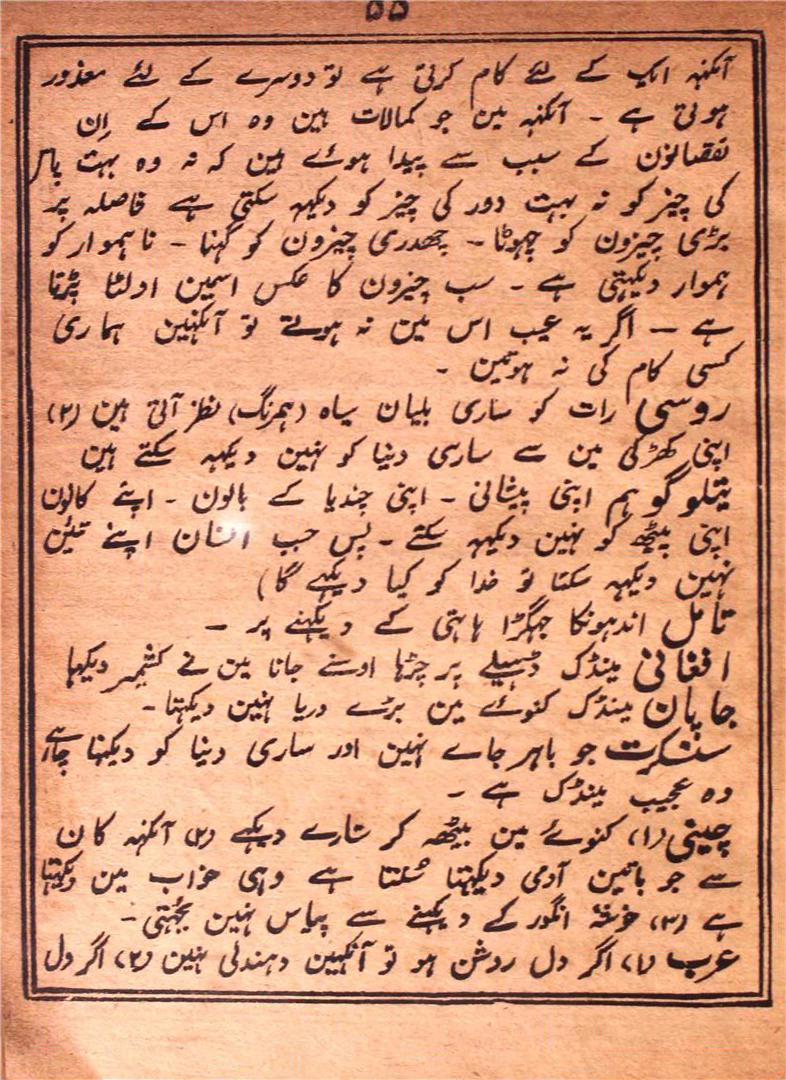 ۵۵
آنکہہ ایک کے لئے کام کرتی ہے تو دوسرے کے لئے معذور
ہوتی ہے ۔ آنکہہ مین جو کمالات ہین وہ اس کے اِن
نقصانون کے سبب سے پیدا ہوئے ہین کہ نہ وہ بہت پاس
کی چیز کو نہ بہت دور کی چیز کو دیکہہ سکتی ہے فاصلہ پر
بڑی چیزون کو چہوٹا ۔ چھدری چیزون کو گہنا ۔ ناہموار کو
ہموار دیکہتی ہے ۔ سب چیزون کا عکس اسمین اولٹا پڑتا
ہے ۔ اگر یہ عیب اس مین نہ ہوتے تو آنکہین ہماری
کسی کام کی نہ ہوتین ۔
روسی رات کو ساری بلیان سیاہ (ہمرنگ) نظر آتی ہین (۲)
اپنی کھڑکی مین سے ساری دنیا کو نہین دیکہہ سکتے ہین
یتلوگو ہم اپنی پیشانی ۔ اپنی چندیا کے بالون ۔ اپنے کانون
اپنی پیٹھ کو نہین دیکہہ سکتے ۔ پس جب انسان اپنے تئین
نہین دیکہہ سکتا تو خدا کو کیا دیکہے گا)
تامل اندہونکا جہگڑا ہاہتی کے دیکہنے پر ۔
افغانی مینڈک ڈہیلے پر چڑہا اوسنے جانا مین نے کشمیر دیکہا
جاپان مینڈک کنوئے مین بڑے دریا نہین دیکہتا ۔
سنسکرت جو باہر جاے نہین اور ساری دنیا کو دیکہنا چاہے
وہ عجیب مینڈک ہے ۔
چینی (۱) کنوئے مین بیٹھہ کر تارے دیکہے (۲) آنکہہ کان
سے جو باتین آدمی دیکہتا سُنتا ہے وہی خواب مین دیکہتا
ہے (۳) خوشۂ انگور کے دیکہنے سے پیاس نہین بُجہتی ۔
عرب (۱) اگر دل روشن ہو تو آنکہین دہندلی نہین (۲) اگر دل